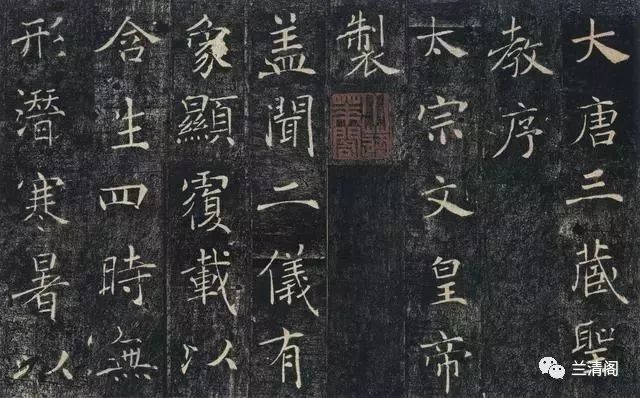 大唐三蔵聖
教序
太宗文皇帝
製
小蓬萊閣
盖聞二儀有
象顯覆載以
含生四時無
形潛寒暑以
兰清阁